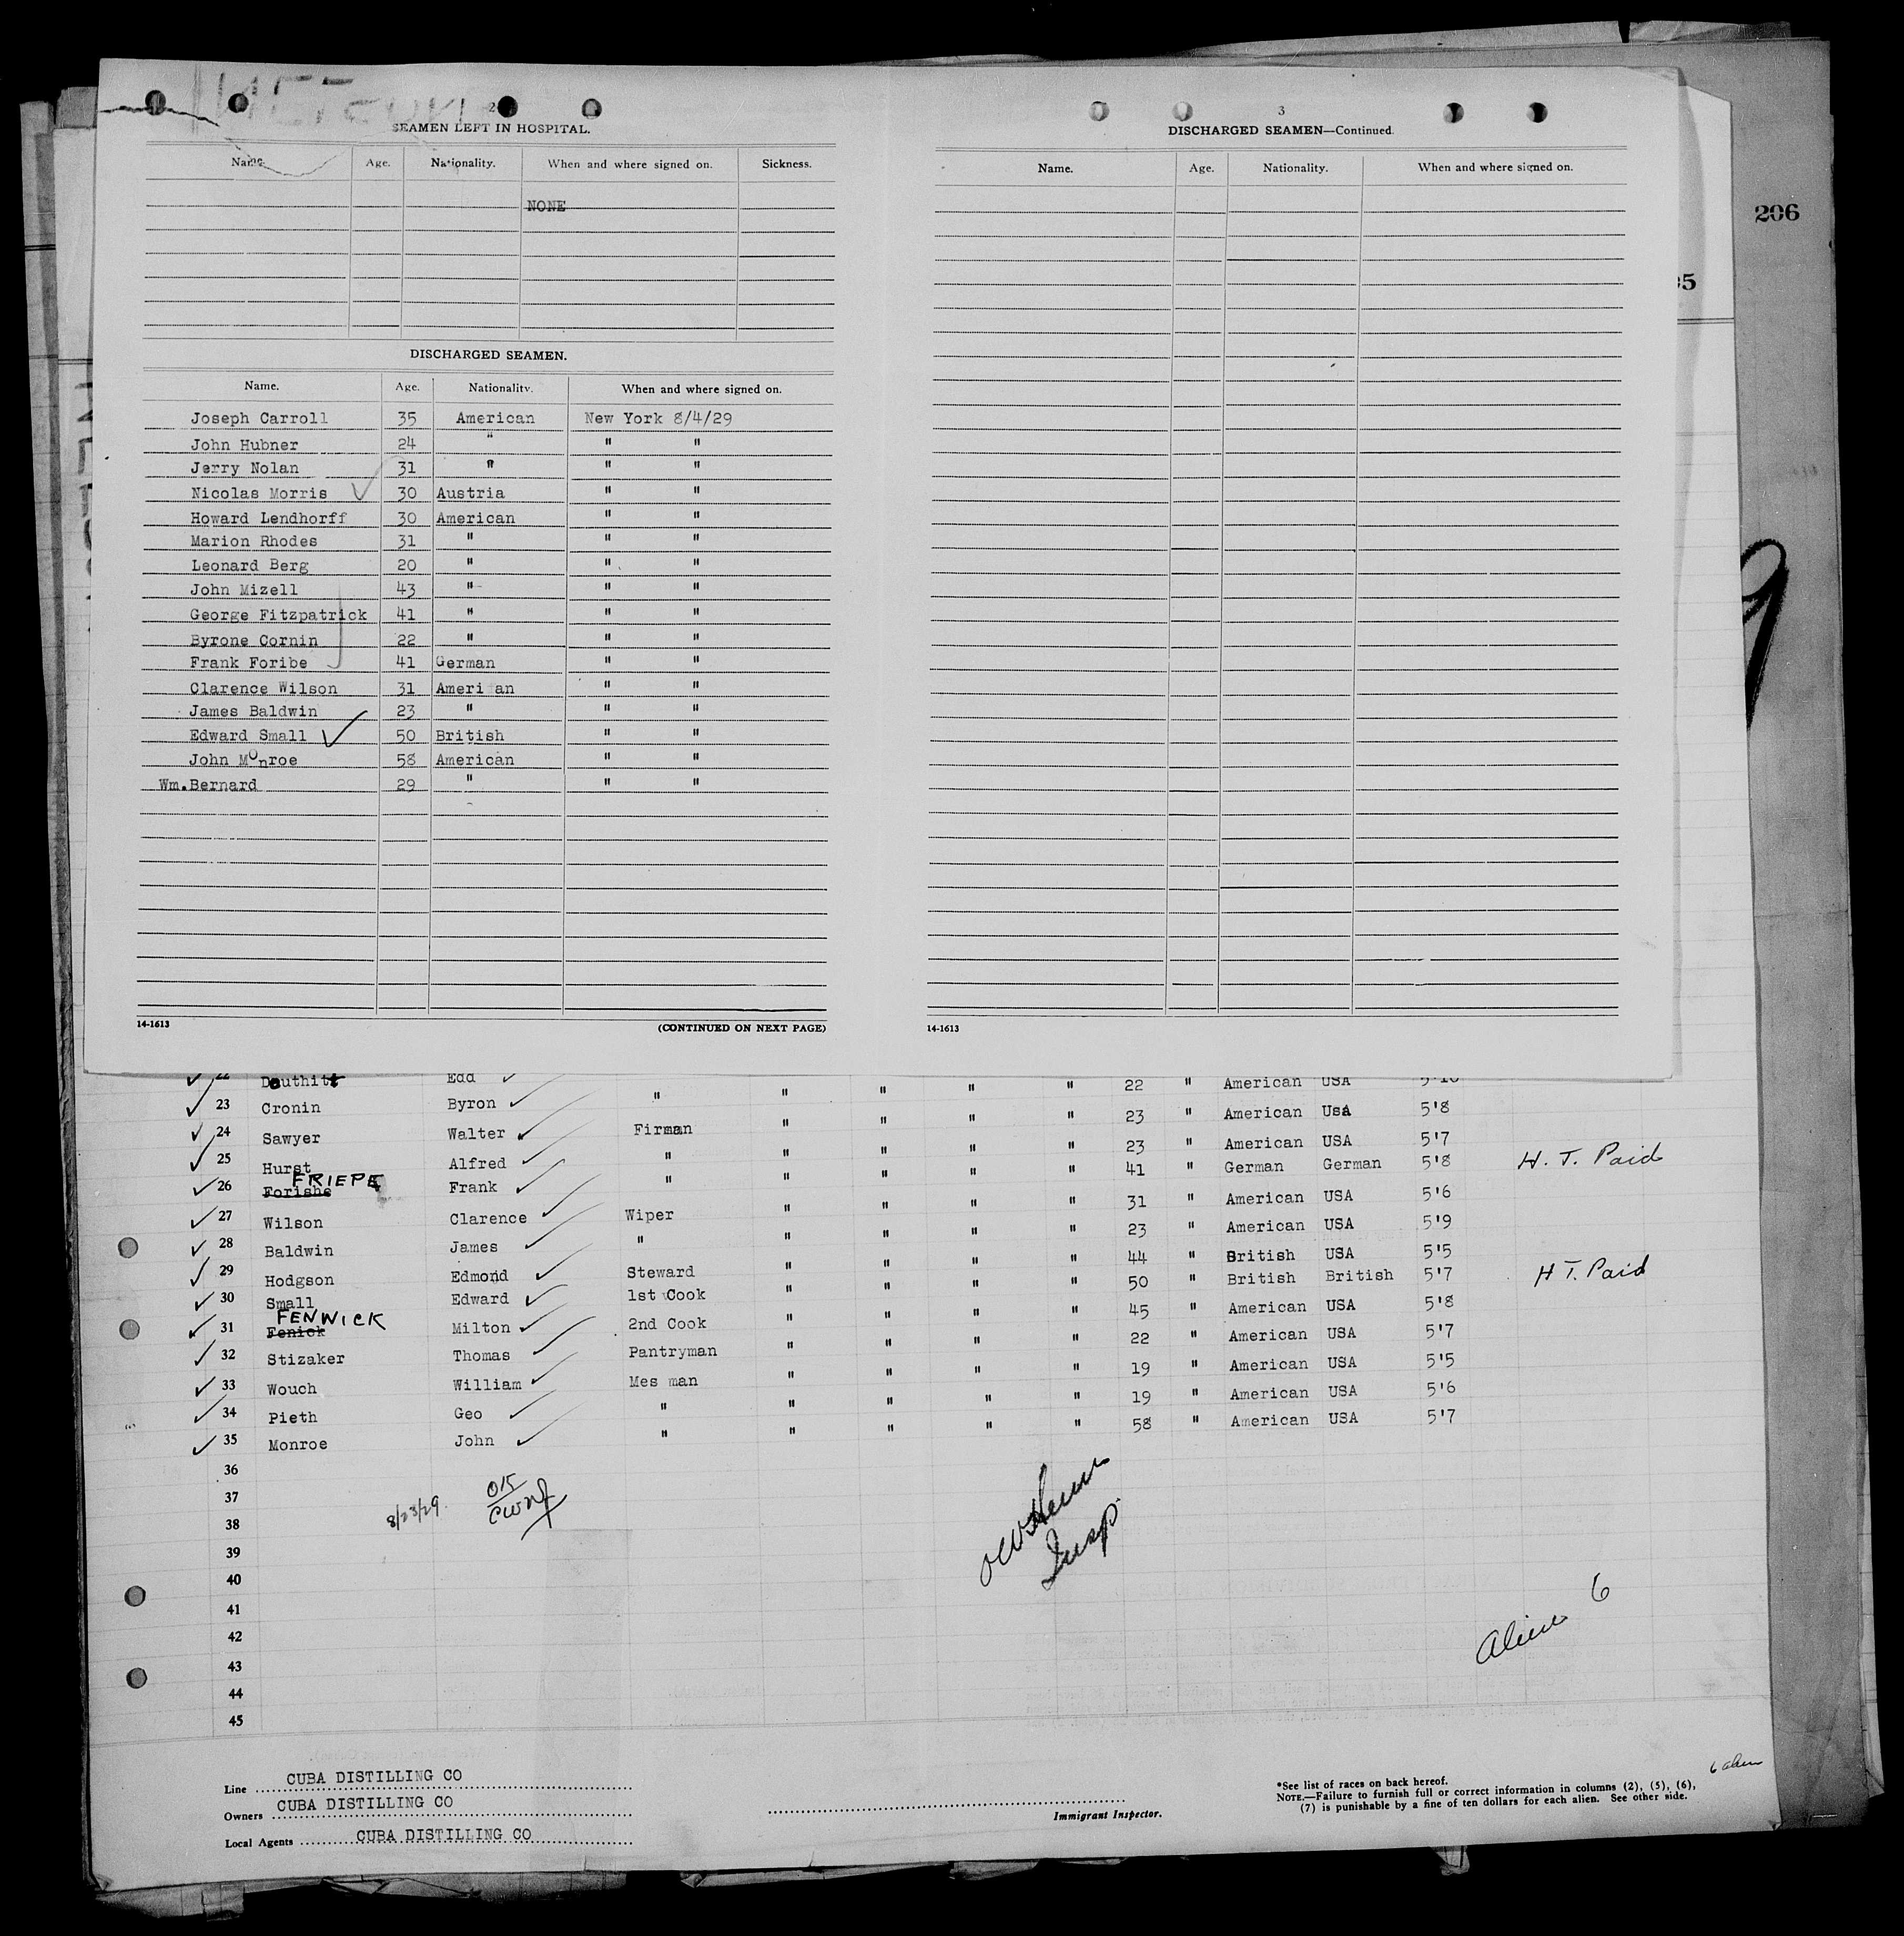 2
SEAMEN LEFT IN HOSPITAL.
Name. Age. Nationality. When and where signed on. Sickness.
NONE
DISCHARGED SEAMEN.
Name. Age. Nationality. When and where signed on.
Joseph Carroll 35 American New York 8/4/29
John Hubner 24 " " "
Jerry Nolan 31 " " "
Nicolas Morris 30 Austria " "
Howard Lendhorff 30 American " "
Marion Rhodes 31 " " "
Leonard Berg 20 " " "
John Mizell 43 " " "
George Fitzpatrick 41 " " "
Byrone Cornin 22 " " "
Frank Foribe 41 German " "
Clarence Wilson 31 Ameri an " "
James Baldwin 23 " " "
Edward Small 50 British " "
John Monroe 58 American " "
Wm. Bernard 29 " " "
14-1613 (CONTINUED ON NEXT PAGE)
3
DISCHARGED SEAMEN—Continued.
Name. Age. Nationality. When and where signed on.
14-1613
206
22 Douthitt Edd " " " " 22 " American USA 5'10
23 Cronin Byron " " " " " 23 " American Usa 5'8
24 Sawyer Walter Firman " " " " 23 " American USA 5'7
25 Hurst Alfred " " " " " 41 " German German 5'8 H. T. Paid
26 Forishe FRIEPE Frank " " " " " 31 " American USA 5'6
27 Wilson Clarence Wiper " " " " 23 " American USA 5'9
28 Baldwin James " " " " " 44 " British USA 5'5
29 Hodgson Edmond Steward " " " " 50 " British British 5'7 H T. Paid
30 Small Edward 1st Cook " " " " 45 " American USA 5'8
31 Fenick FENWICK Milton 2nd Cook " " " " 22 " American USA 5'7
32 Stizaker Thomas Pantryman " " " " 19 " American USA 5'5
33 Wouch William Mes man " " " " 19 " American USA 5'6
34 Pieth Geo " " " " " 58 " American USA 5'7
35 Monroe John " " " " "
36
37
38 8/23/29
39
40
41
42
43
44
45
Insp.
Aliens 6
6 alien
Line CUBA DISTILLING CO
Owners CUBA DISTILLING CO
Local Agents CUBA DISTILLING CO
Immigrant Inspector.
*See list of races on back hereof.
NOTE.—Failure to furnish full or correct information in columns (2), (5), (6),
(7) is punishable by a fine of ten dollars for each alien. See other side.